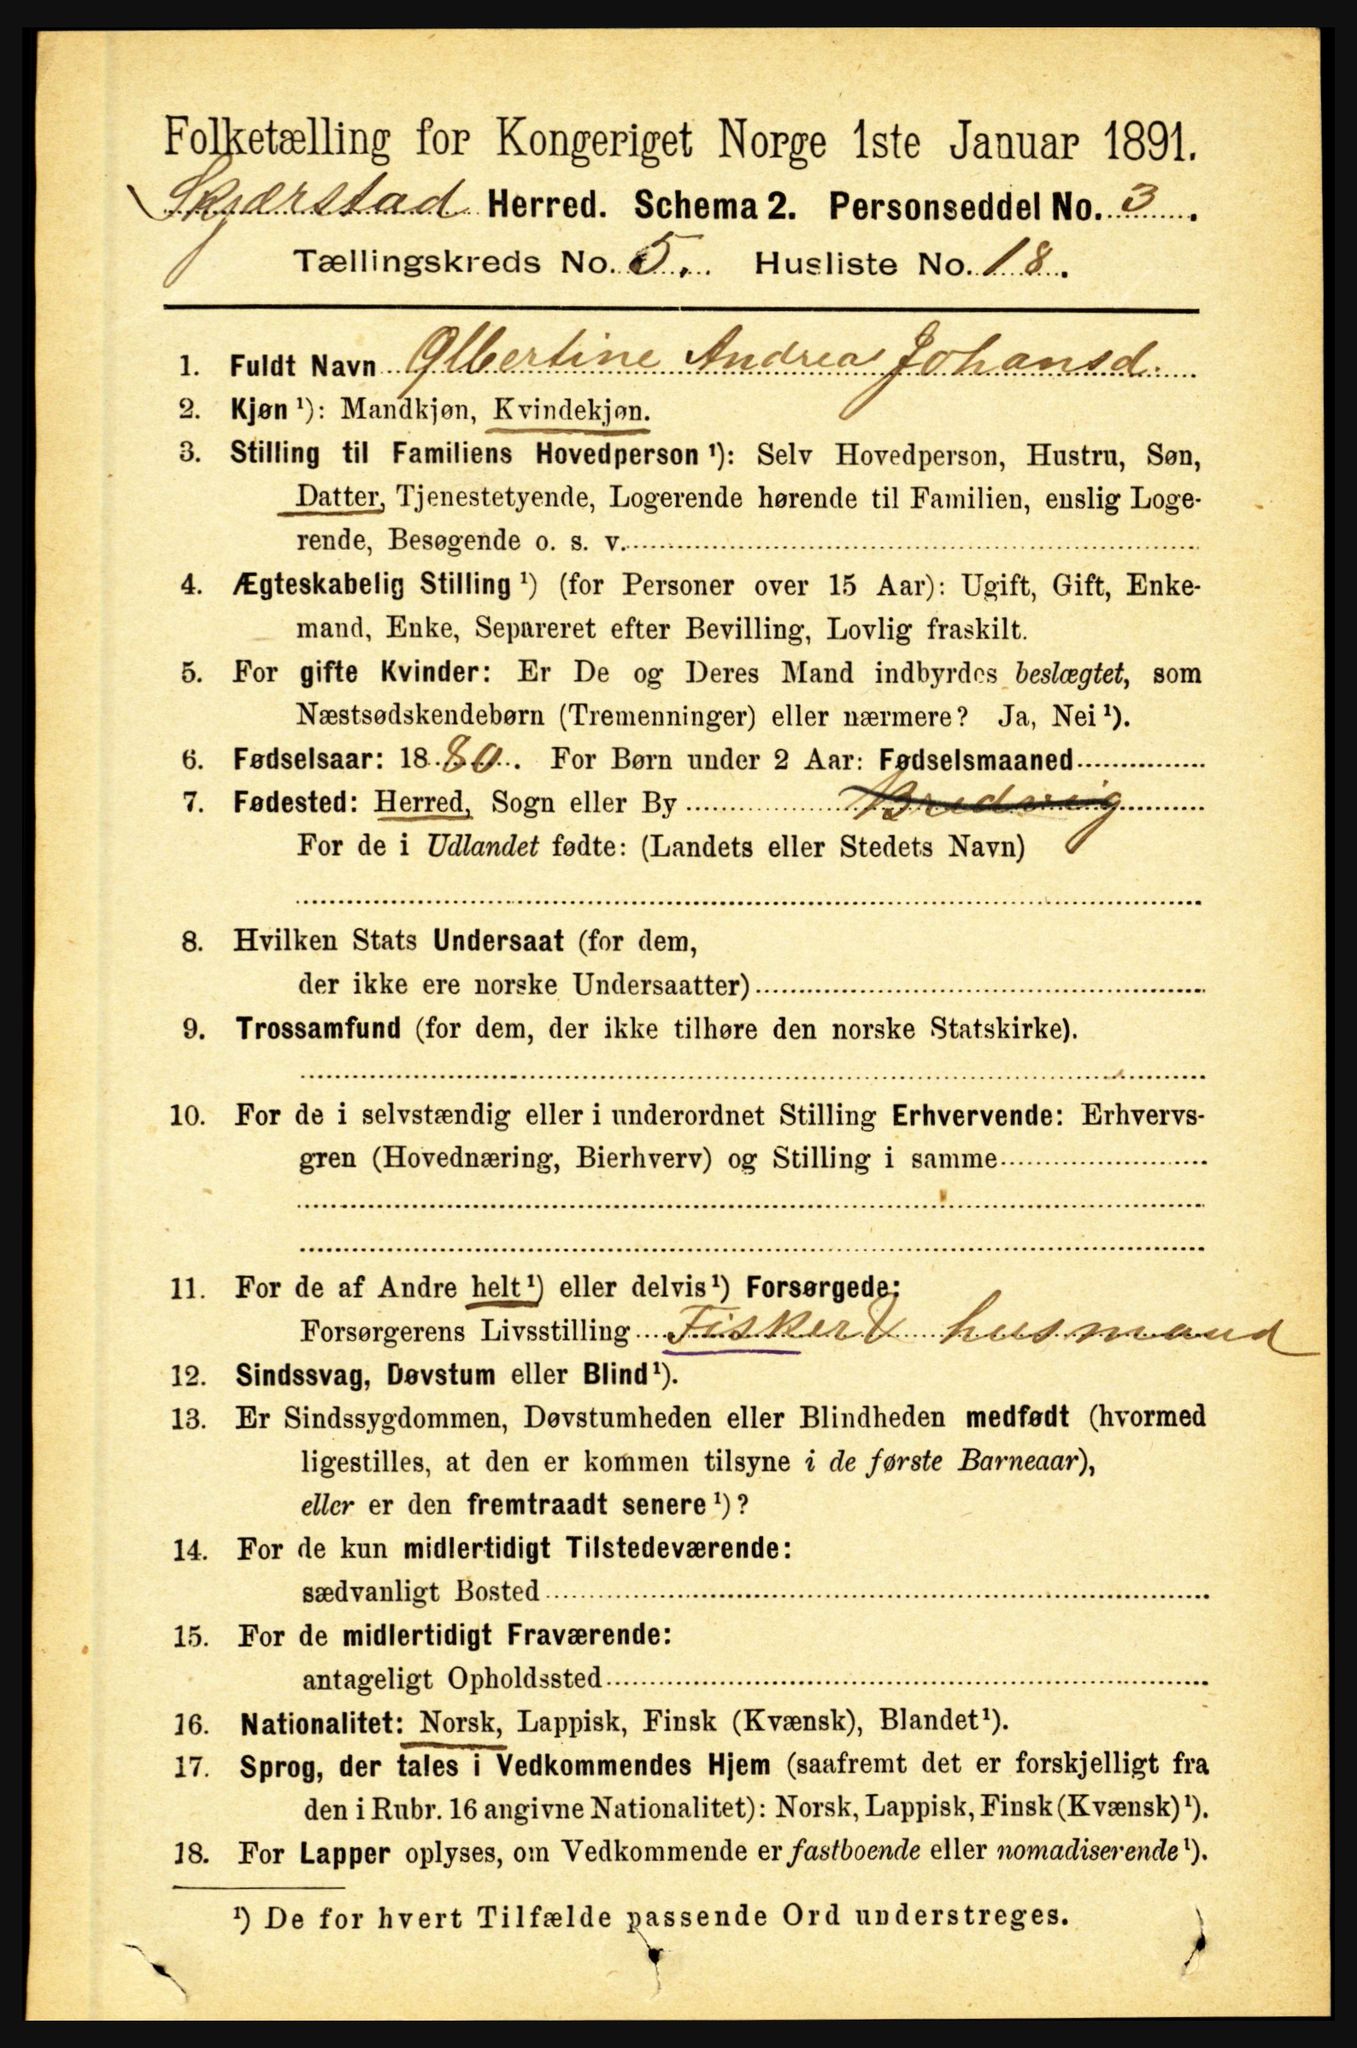 Folketælling for Kongeriget Norge 1ste Januar 1891.
Skjærstad Herred. Schema 2. Personseddel No. 3.
Tællingskreds No. 5. Husliste No. 18.
1. Fuldt Navn Albertine Andrea Johansd.
2. Kjøn ¹): Mandkjøn, Kvindekjøn.
3. Stilling til Familiens Hovedperson ¹): Selv Hovedperson, Hustru, Søn,
Datter, Tjenestetyende, Logerende hørende til Familien, enslig Loge-
rende, Besøgende o. s. v.
4. Ægteskabelig Stilling ¹) (for Personer over 15 Aar): Ugift, Gift, Enke-
mand, Enke, Separeret efter Bevilling, Lovlig fraskilt.
5. For gifte Kvinder: Er De og Deres Mand indbyrdes beslægtet, som
Næstsødskendebørn (Tremenninger) eller nærmere? Ja, Nei ¹).
6. Fødselsaar: 1880. For Børn under 2 Aar: Fødselsmaaned
7. Fødested: Herred, Sogn eller By Bredvig
For de i Udlandet fødte: (Landets eller Stedets Navn)
8. Hvilken Stats Undersaat (for dem,
der ikke ere norske Undersaatter)
9. Trossamfund (for dem, der ikke tilhøre den norske Statskirke).
10. For de i selvstændig eller i underordnet Stilling Erhvervende: Erhvervs-
gren (Hovednæring, Bierhverv) og Stilling i samme
11. For de af Andre helt ¹) eller delvis ¹) Forsørgede:
Forsørgerens Livsstilling Fisker & husmand
12. Sindssvag, Døvstum eller Blind ¹).
13. Er Sindssygdommen, Døvstumheden eller Blindheden medfødt (hvormed
ligestilles, at den er kommen tilsyne i de første Barneaar),
eller er den fremtraadt senere ¹)?
14. For de kun midlertidigt Tilstedeværende:
sædvanligt Bosted
15. For de midlertidigt Fraværende:
antageligt Opholdssted
16. Nationalitet: Norsk, Lappisk, Finsk (Kvænsk), Blandet ¹).
17. Sprog, der tales i Vedkommendes Hjem (saafremt det er forskjelligt fra
den i Rubr. 16 angivne Nationalitet): Norsk, Lappisk, Finsk (Kvænsk) ¹).
18. For Lapper oplyses, om Vedkommende er fastboende eller nomadiserende ¹).
¹) De for hvert Tilfælde passende Ord understreges.